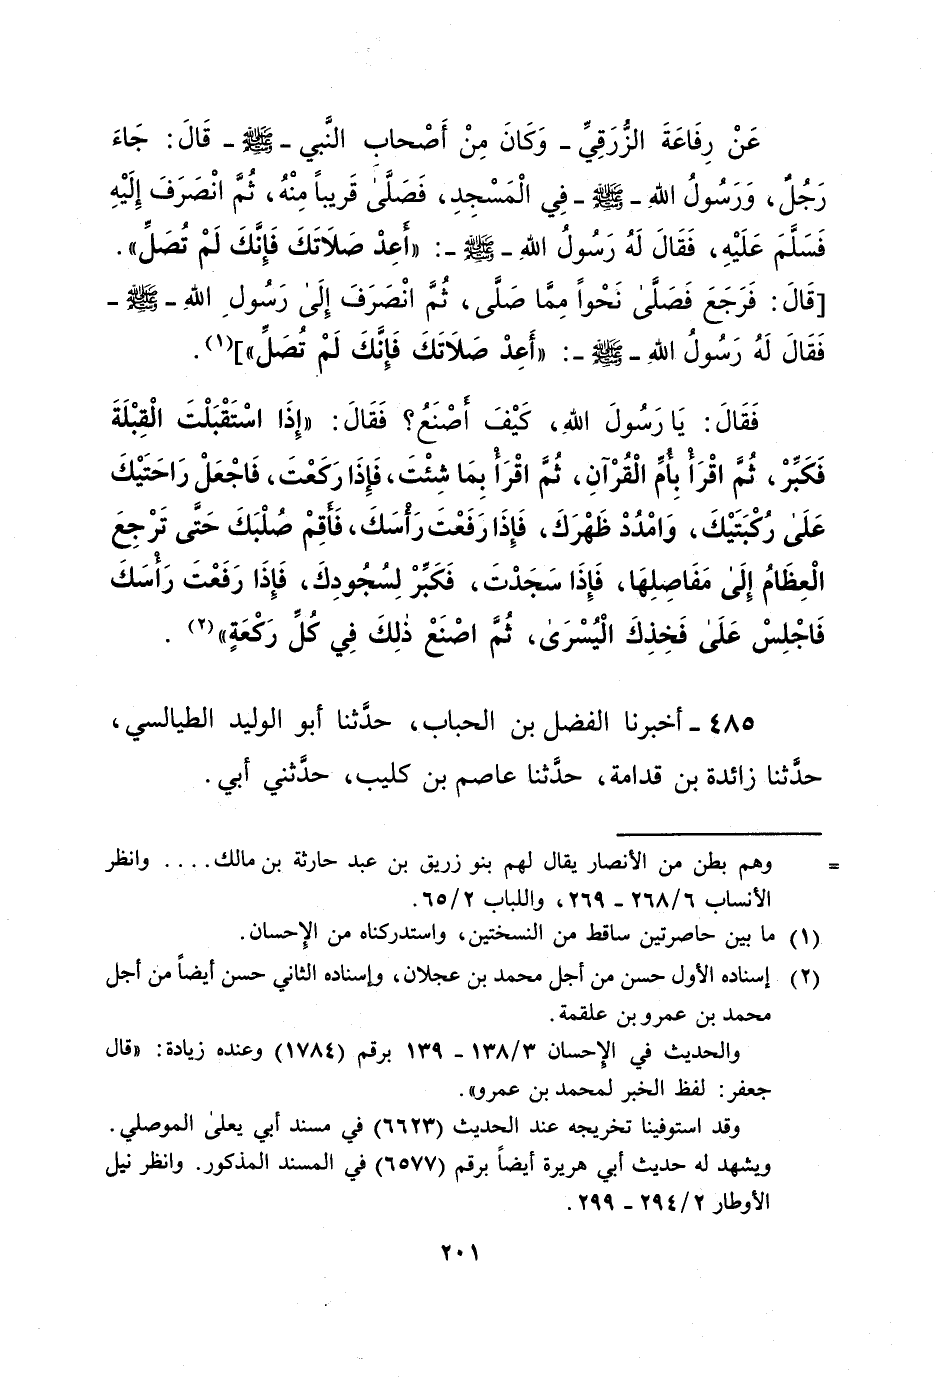 عَنْ رِفَاعَةَ الزُّرَقِيِّ ـ وَكَانَ مِنْ أَصْحَابِ النَّبي ـ ﷺ ـ قَالَ: جَاءَ
رَجُلٌ، وَرَسُولُ اللهِ ـ ﷺ ـ فِي الْمَسْجِدِ، فَصَلَّىٰ قَرِيباً مِنْهُ، ثُمَّ انْصَرَفَ إِلَيْهِ
فَسَلَّمَ عَلَيْهِ، فَقَالَ لَهُ رَسُولُ اللهِ ـ ﷺ ـ: «أَعِدْ صَلَاتَكَ فَإِنَّكَ لَمْ تُصَلِّ».
[قَالَ: فَرَجَعَ فَصَلَّىٰ نَحْواً مِمَّا صَلَّى، ثُمَّ انْصَرَفَ إِلَىٰ رَسُولِ اللهِ ـ ﷺ ـ
فَقَالَ لَهُ رَسُولُ اللهِ ـ ﷺ ـ: «أَعِدْ صَلَاتَكَ فَإِنَّكَ لَمْ تُصَلِّ»](١).
فَقَالَ: يَا رَسُولَ اللهِ، كَيْفَ أَصْنَعُ؟ فَقَالَ: «إِذَا اسْتَقْبَلْتَ الْقِبْلَةَ
فَكَبِّرْ، ثُمَّ اقْرَأْ بِأُمِّ الْقُرْآنِ، ثُمَّ اقْرَأْ بِمَا شِئْتَ، فَإِذَا رَكَعْتَ، فَاجْعَلْ رَاحَتَيْكَ
عَلَىٰ رُكْبَتَيْكَ، وَامْدُدْ ظَهْرَكَ، فَإِذَا رَفَعْتَ رَأْسَكَ، فَأَقِمْ صُلْبَكَ حَتَّى تَرْجِعَ
الْعِظَامُ إِلَىٰ مَفَاصِلِهَا، فَإِذَا سَجَدْتَ، فَكَبِّرْ لِسُجُودِكَ، فَإِذَا رَفَعْتَ رَأْسَكَ
فَاجْلِسْ عَلَىٰ فَخِذِكَ الْيُسْرَىٰ، ثُمَّ اصْنَعْ ذٰلِكَ فِي كُلِّ رَكْعَةٍ»(٢).
٤٨٥ ـ أخبرنا الفضل بن الحباب، حدَّثنا أبو الوليد الطيالسي،
حدَّثنا زائدة بن قدامة، حدَّثنا عاصم بن كليب، حدَّثني أبي.
= وهم بطن من الأنصار يقال لهم بنو زريق بن عبد حارثة بن مالك.... وانظر
الأنساب ٢٦٨/٦ ـ ٢٦٩، واللباب ٦٥/٢.
(١) ما بين حاصرتين ساقط من النسختين، واستدركناه من الإحسان.
(٢) إسناده الأول حسن من أجل محمد بن عجلان، وإسناده الثاني حسن أيضاً من أجل
محمد بن عمرو بن علقمة.
والحديث في الإحسان ١٣٨/٣ ـ ١٣٩ برقم (١٧٨٤) وعنده زيادة: «قال
جعفر: لفظ الخبر لمحمد بن عمرو».
وقد استوفينا تخريجه عند الحديث (٦٦٢٣) في مسند أبي يعلىٰ الموصلي.
ويشهد له حديث أبي هريرة أيضاً برقم (٦٥٧٧) في المسند المذكور. وانظر نيل
الأوطار ٢٩٤/٢ ـ ٢٩٩.
٢٠١